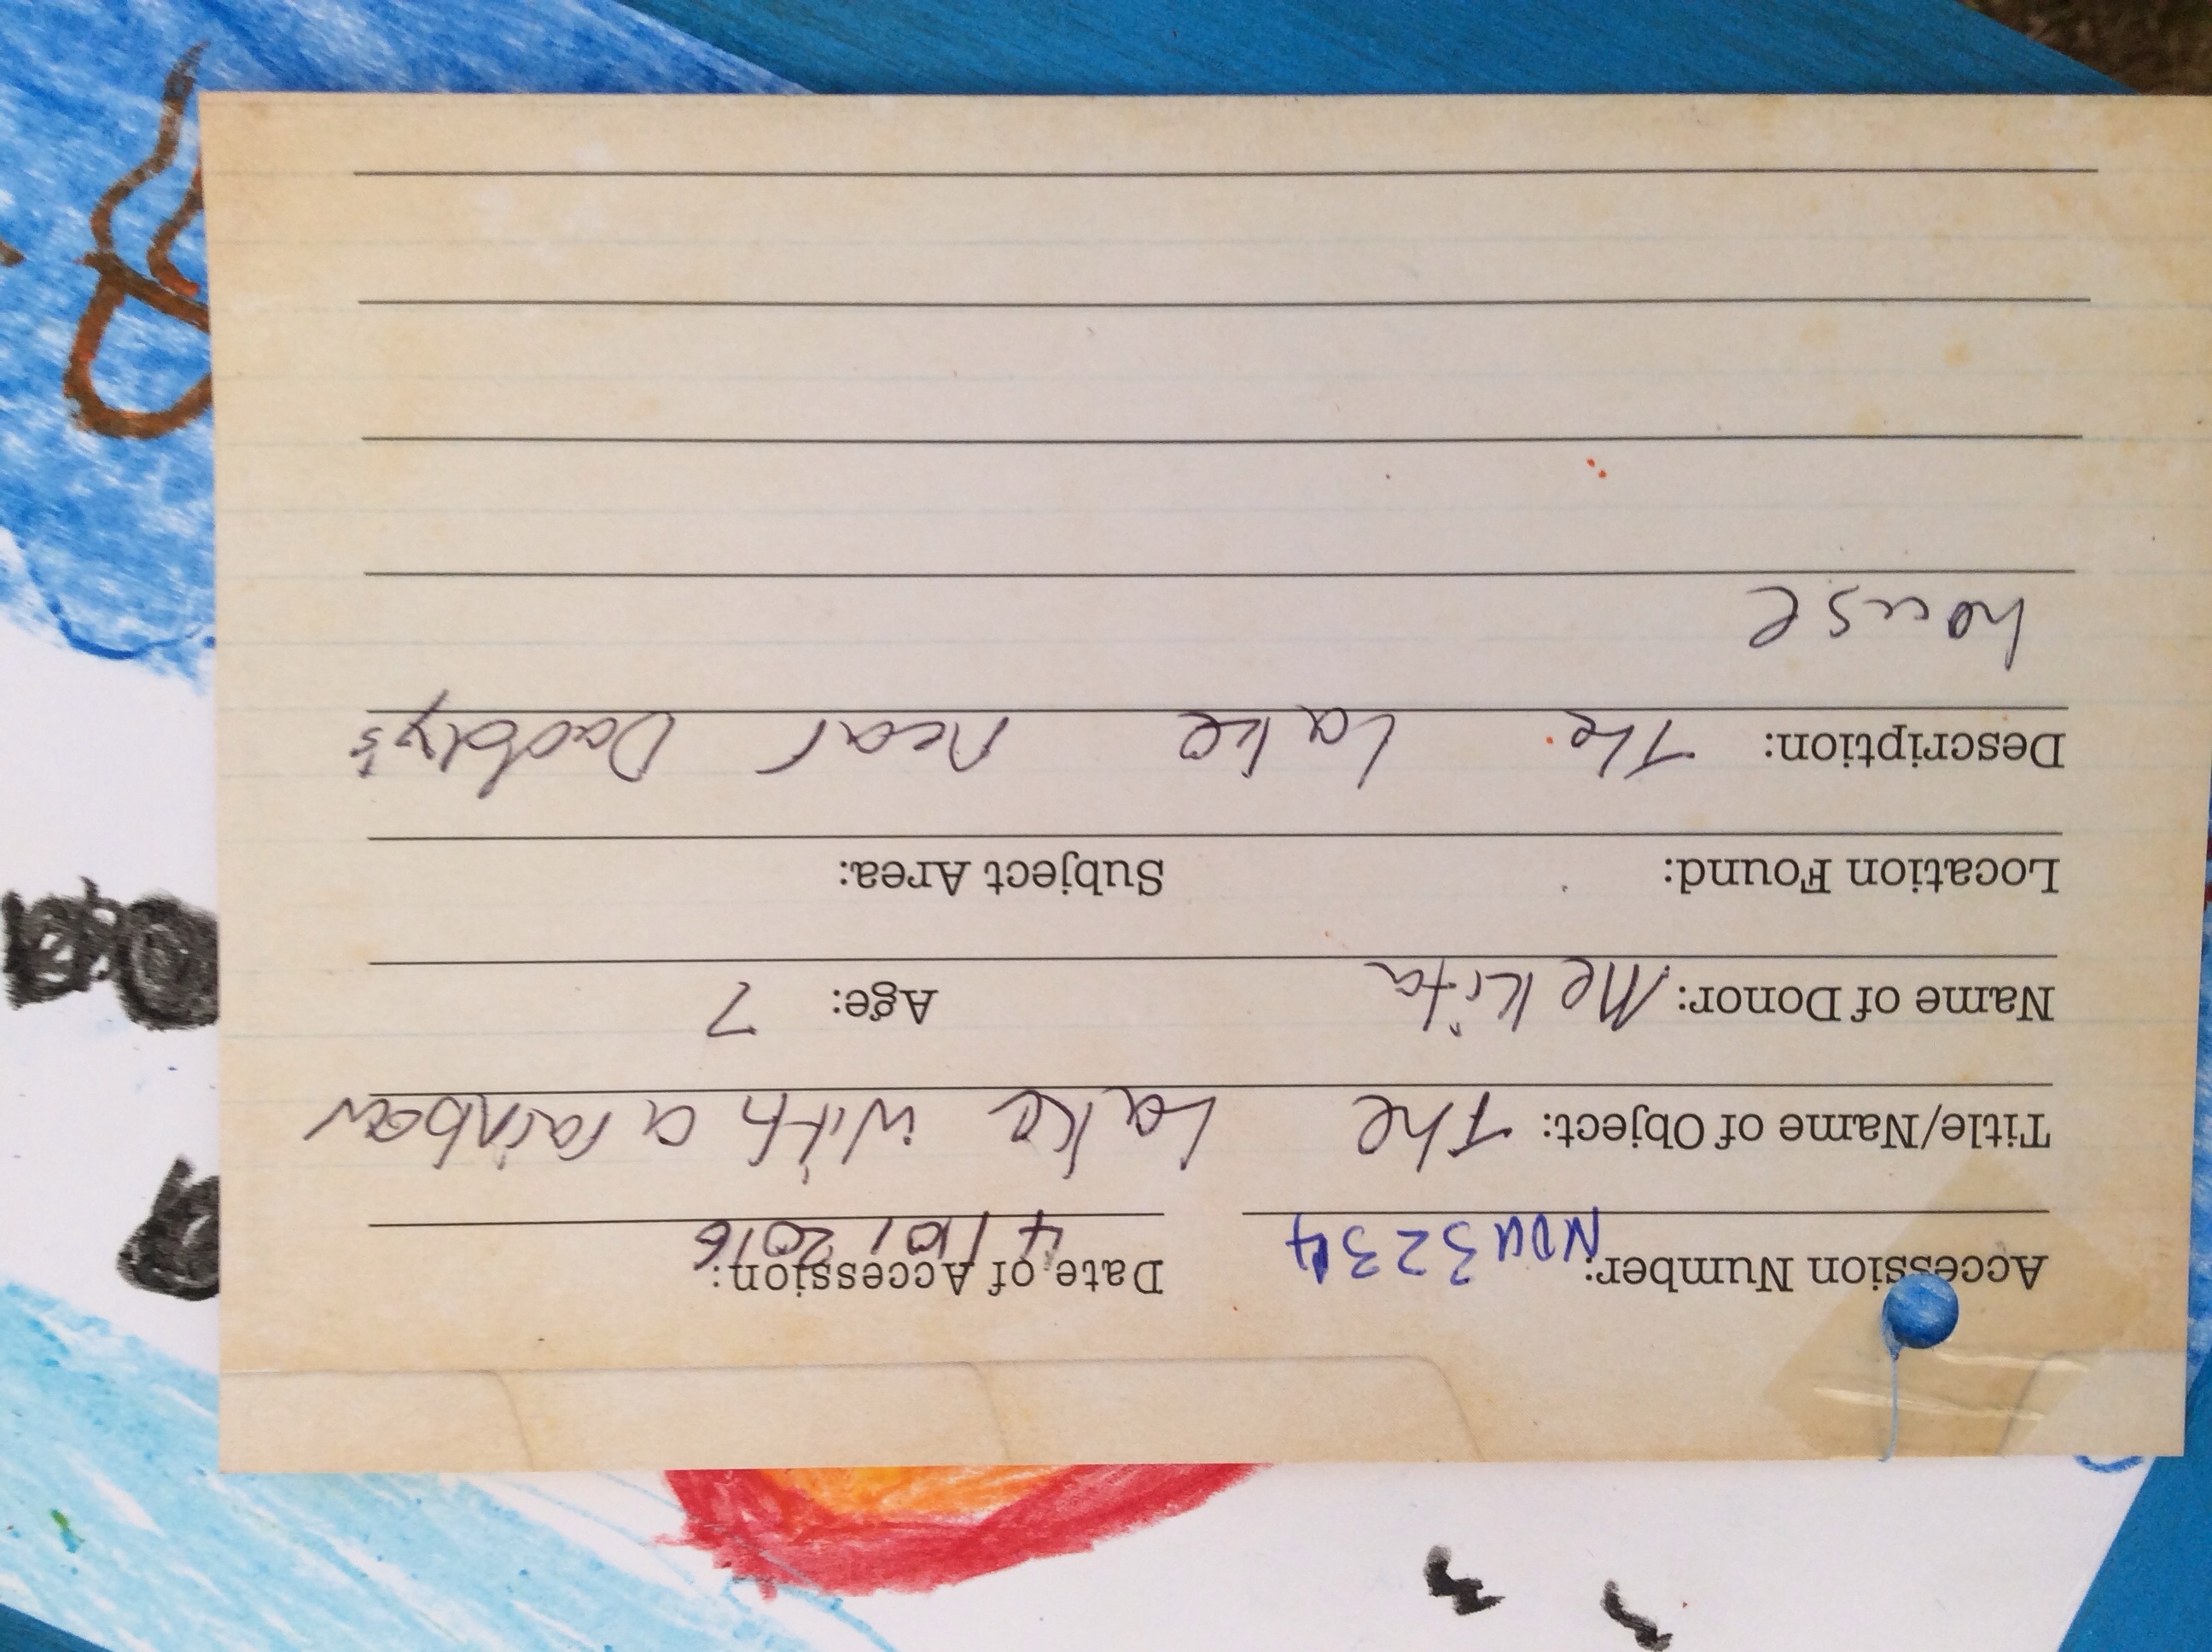 Accession Number: NDU3234 Date of Accession: 4/10/2016
Title/Name of Object: The Lake with a rainbow
Name of Donor: Mekita Age: 7
Location Found: Subject Area:
Description: The Lake near Daddy's
house